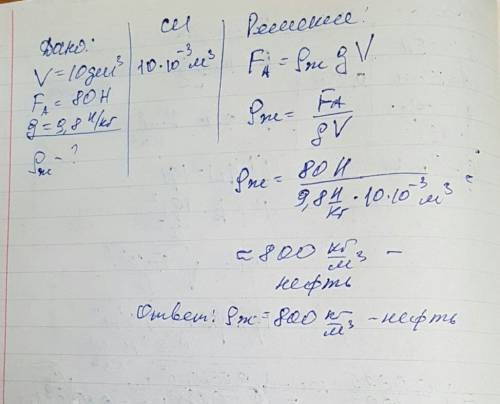 Дано:
V = 10 дм³
Fₐ = 80 Н
g = 9,8 Н/кг
ρж - ?
СИ
10·10⁻³ м³
Решение:
Fₐ = ρж g V
ρж = Fₐ / gV
ρж = 80 Н / 9,8 Н/кг · 10·10⁻³ м³ =
≈ 800 кг/м³ –
нефть
Ответ: ρж = 800 кг/м³ – нефть